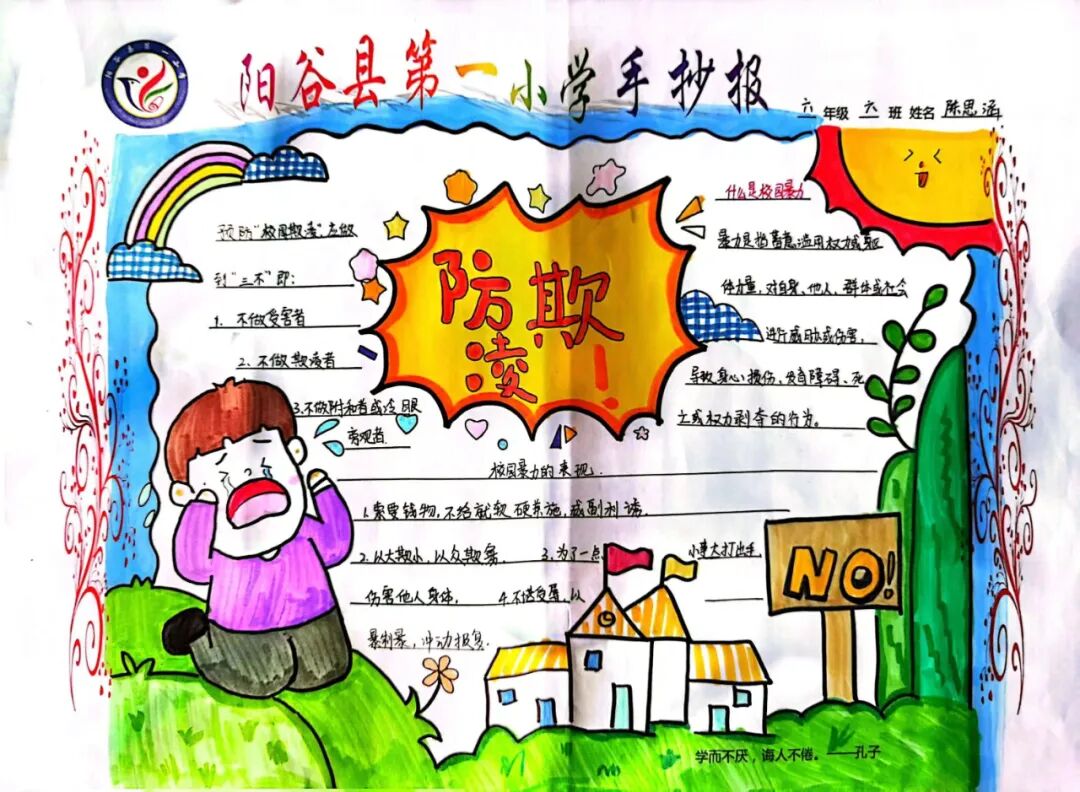 阳谷县第一小学
阳谷县第一小学手抄报
六 年级 六 班 姓名 陈思涵
防欺
凌!
预防"校园欺凌",应做
到"三不"即:
1. 不做受害者
2. 不做欺凌者
3.不做附和者或冷眼
旁观者
什么是校园暴力
暴力是指蓄意滥用权力或躯
体力量,对自身、他人、群体或社会
进行威胁或伤害,
导致身心损伤、发育障碍、死
亡或权力剥夺的行为。
校园暴力的表现.
1.索要钱物,不给就软硬兼施,威逼利诱.
2.以大欺小,以众欺寡. 3.为了一点小事大打出手,
伤害他人身体. 4.不堪受辱,以
暴制暴,冲动报复.
NO!
学而不厌,诲人不倦。——孔子